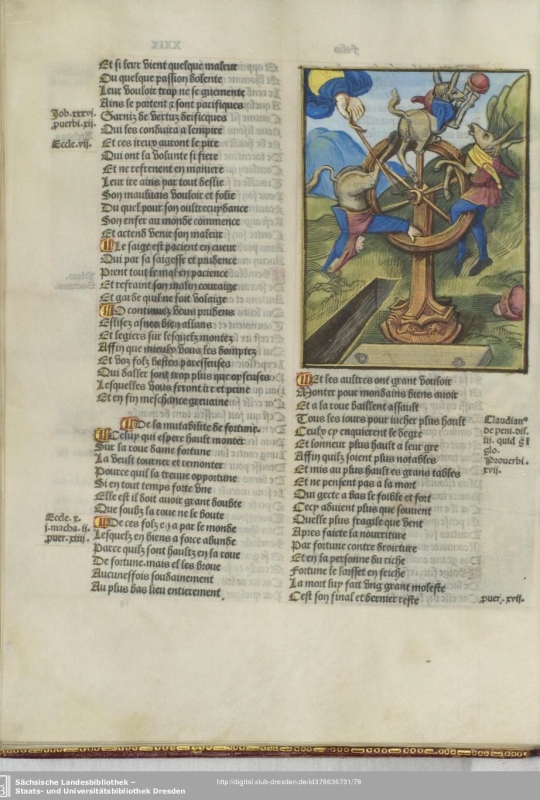 Et si leur vient quelque maleur
Ou quelque passion dolente
Leur vouloir trop ne se guemente
Ains le portent a sont pacifiques
Garniz de vertuz deificques
Qui les conduira a lempire
Et ces ireux auront le pire
Qui ont la volunte si fiere
Et ne refrenent en maniere
Leur ire ains par tout deslie
Son mauluais vouloir et folie
Du quel pour son oultrecuydance
Son enfer au monde commence
Et actend venir son maleur
Le saige est pacient en cueur
Qui par sa saigesse et prudence
Prent tout le mal en pacience
Et refraint son malin couraige
Et garde quil ne soit volaige
O continuez vous prudens
Eslisez asnes bien allans
Et legiers sur lesquelz montez
Affin que mieulx vous les domptez
Et voz folz bestes paresseuses
Qui daller sont trop plus que opseuses
Lesquelles vous feront ire et peine
Et en fin meschance greuaine
De la mutabilite de fortune.
Celuy qui espere hault monter
Sur la roue dame fortune
La veult tourner et remonter
Pource quil la treuue opportune
Si en tout temps sorte vne
Elle est il doit auoir grant doubte
Que soubz la roue ne le boute
De ces folz en a par le monde
Lesquelz en biens a force abunde
Parce quilz sont haultz en la roue
De fortune. mais elles broue
Aucunesfois soubdainement
Au plus bas lieu entierement
Job. xxxvi.
puerbi. xij.
Eccle. vij.
Eccle. x.
i. macha. ij.
puer. xiiij.
Et les aultres ont grant vouloir
Monter pour mondains biens auoir
Et a la roue baillent assault
Tous les iours pour iucher plus hault
Ceulx cy enquierent le degre
Et honneur plus hault a leur gre
Affin quilz soient plus notables
Et mis au plus hault es grans tables
Et ne pensent pas a la mort
Qui gecte a bas le foible et fort
Cecy aduient plus que souuent
Quelle plus fragile que vent
Apres faicte la nourriture
Par fortune contre droicture
Et en la personne du riche
Fortune le laisset en friche
La mort luy fait vng grant moleste
Cest son final et dernier reste
Claudian⁹
de peni. dis.
iii. quid
glo.
Prouerbi.
xvij.
puer. xvii.
Sächsische Landesbibliothek –
Staats- und Universitätsbibliothek Dresden
http://digital.slub-dresden.de/id378636731/78